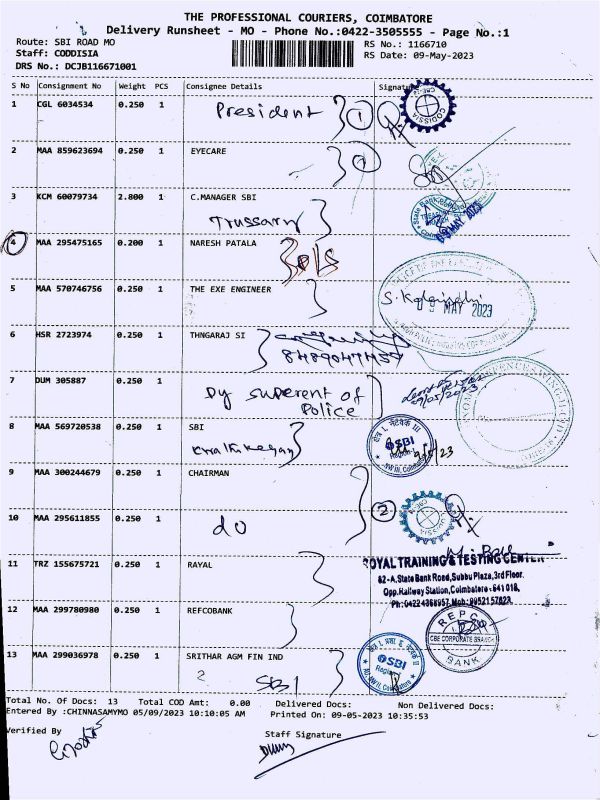 THE PROFESSIONAL COURIERS, COIMBATORE
Delivery Runsheet - MO - Phone No.:0422-3505555 - Page No.:1
Route: SBI ROAD MO
RS No.: 1166710
Staff: CODDISIA
RS Date: 09-May-2023
DRS No.: DCJB116671001
S No Consignment No Weight PCS Consignee Details Signature
1 CGL 6034534 0.250 1 President 1
CODISSIA
2 MAA 859623694 0.250 1 EYECARE 1
3 KCM 60079734 2.800 1 C.MANAGER SBI
Trussary
09 MAY 2023
4 MAA 295475165 0.200 1 NARESH PATALA
o/s
5 MAA 570746756 0.250 1 THE EXE ENGINEER
MAY 2023
6 HSR 2723974 0.250 1 THNGARAJ SI
7 DUM 305887 0.250 1
Dy superent of
Police
09/05/2023
8 MAA 569720538 0.250 1 SBI
SBI
9 MAA 300244679 0.250 1 CHAIRMAN
2
10 MAA 295611855 0.250 1 do
11 TRZ 155675721 0.250 1 RAYAL
ROYAL TRAINING & TESTING CENTER
82-A, State Bank Road, Subbu Plaza, 3rd Floor.
Opp. Railway Station, Coimbatore - 641 018.
12 MAA 299780980 0.250 1 REFCOBANK
REPCO
CBE CORPORATE BRANCH
BANK
13 MAA 299036978 0.250 1 SRITHAR AGM FIN IND
2 SBI
SBI
Total No. Of Docs: 13 Total COD Amt: 0.00 Delivered Docs: Non Delivered Docs:
Entered By :CHINNASAMYMO 05/09/2023 10:10:05 AM Printed On: 09-05-2023 10:35:53
Verified By
Staff Signature